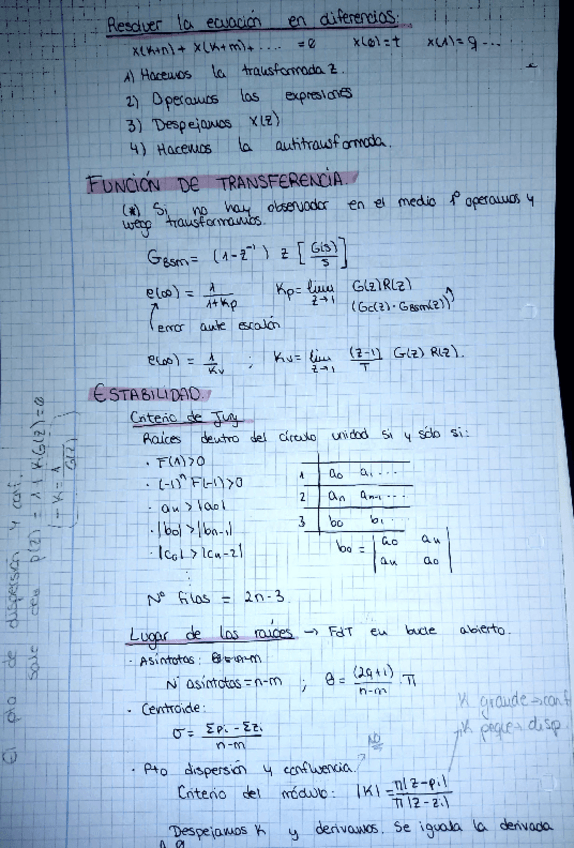 Resolver la ecuación en diferencias:
x(k+n) + x(k+m) + .... = 0 x(0) = t x(1) = g ...
1) Hacemos la transformada z.
2) Operamos las expresiones
3) Despejamos X(z)
4) Hacemos la antitransformada.
FUNCIÓN DE TRANSFERENCIA.
(*) Si no hay observador en el medio 1º operamos y
luego transformamos.
GBSM = (1-z⁻¹) z [G(s)/s]
e(∞) = 1/(1+Kp) Kp = lim z→1 G(z)R(z)
(Gc(z)·GBSM(z))
error ante escalón
e(∞) = 1/Kv ; Kv = lim z→1 (z-1)/T G(z) R(z).
ESTABILIDAD.
Criterio de Jury
Raíces dentro del círculo unidad si y sólo si:
· F(1)>0
· (-1)ⁿ F(-1)>0
· an > |a0|
· |b0| > |bn-1|
· |c0| > |cn-2|
⋮
1 a0 a1 ...
2 an an-1 ...
3 b0 b1
b0 = |a0 an|
|an a0|
Nº filas = 2n-3
Lugar de las raíces → FdT en bucle abierto.
· Asíntotas:
Nº asíntotas = n-m ; θ = (2q+1)/(n-m) · π
· Centroide:
σ = (Σpi - Σzi)/(n-m)
NO
K grande → conf
K peque → disp.
· Pto dispersión y confluencia.
Criterio del módulo: |K| = π|z-pi|/π|z-zi|
Despejamos K y derivamos. Se iguala la derivada
a 0
El pto de dispersión y conf.
sale de p(z) = 1+KG(z)=0
(-K = 1/G(z))